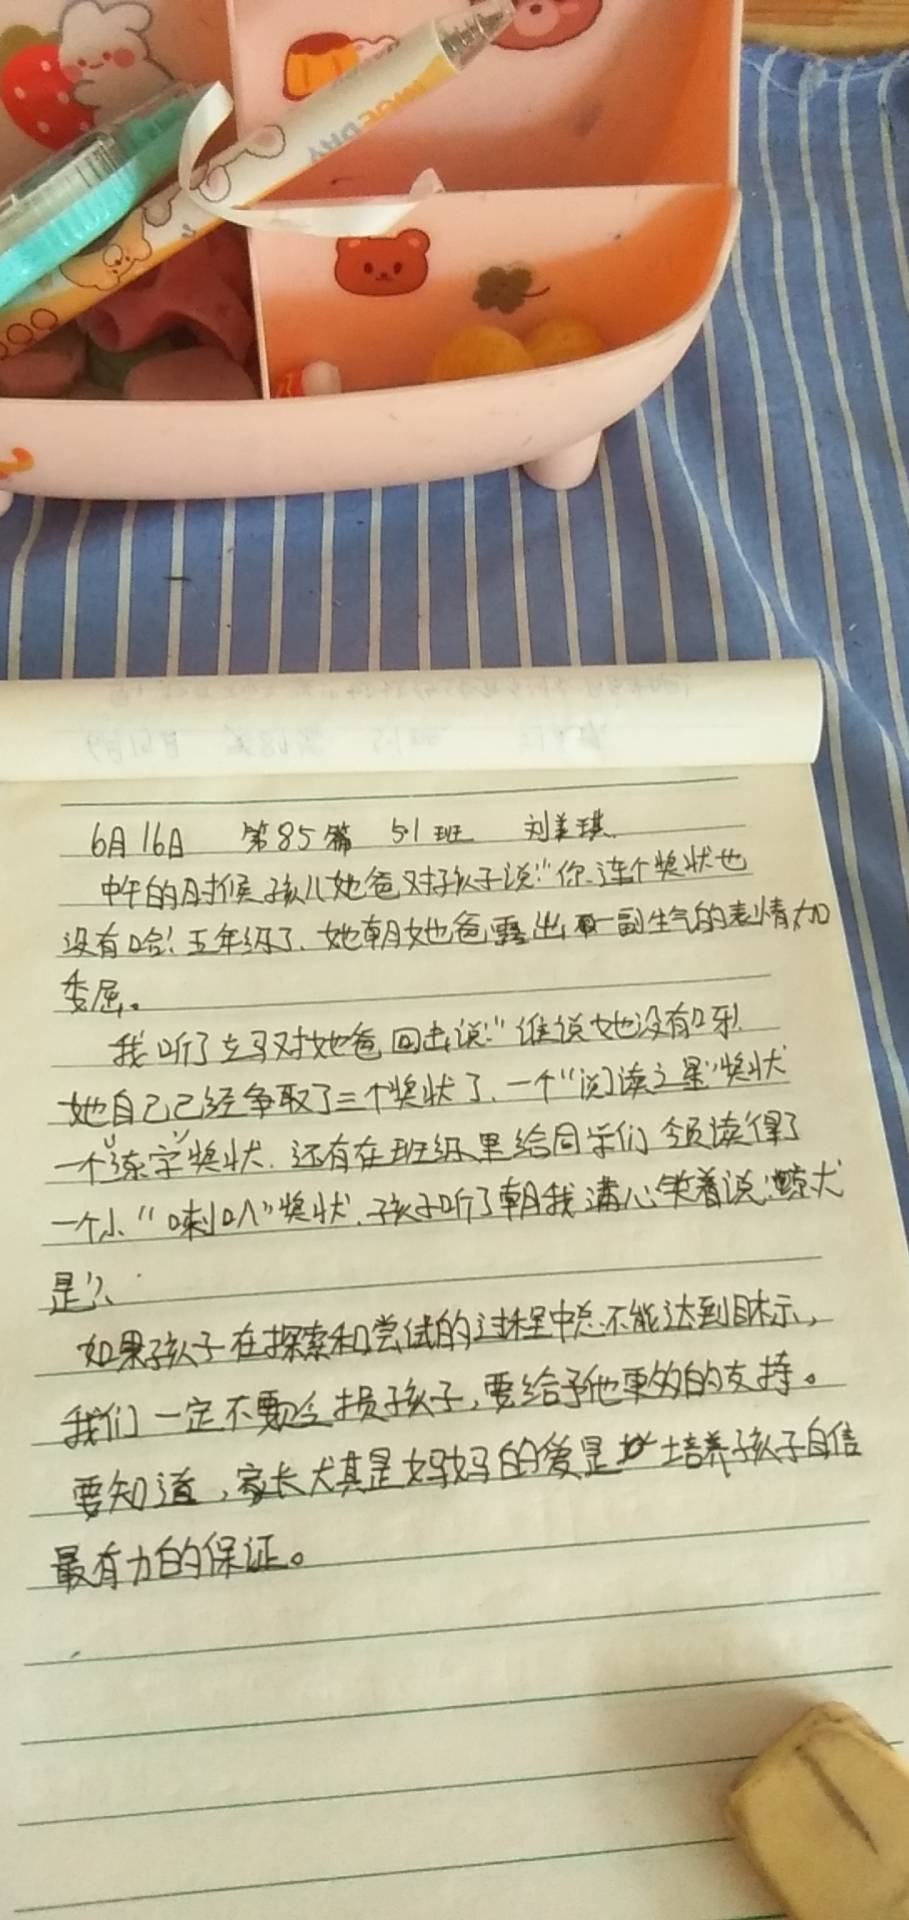 6月16日 第85篇 5.1班 刘美琪
中午的时候孩儿她爸对孩子说:"你连个奖状也
没有哈!五年级了、她朝她爸露出一副生气的表情加
委屈。
我听了立马对她爸回击说:"谁说她没有呀.
她自己已经争取了三个奖状了、一个"阅读之星"奖状
一个"练字"奖状.还有在班级里给同学们领读得了
一个小"喇叭"奖状.孩子听了朝我满心笑着说:
是"、
如果孩子在探索和尝试的过程中总不能达到目标,
我们一定不要损孩子,要给予他更多的支持。
要知道,家长尤其是妈妈的爱是培养孩子自信
最有力的保证。